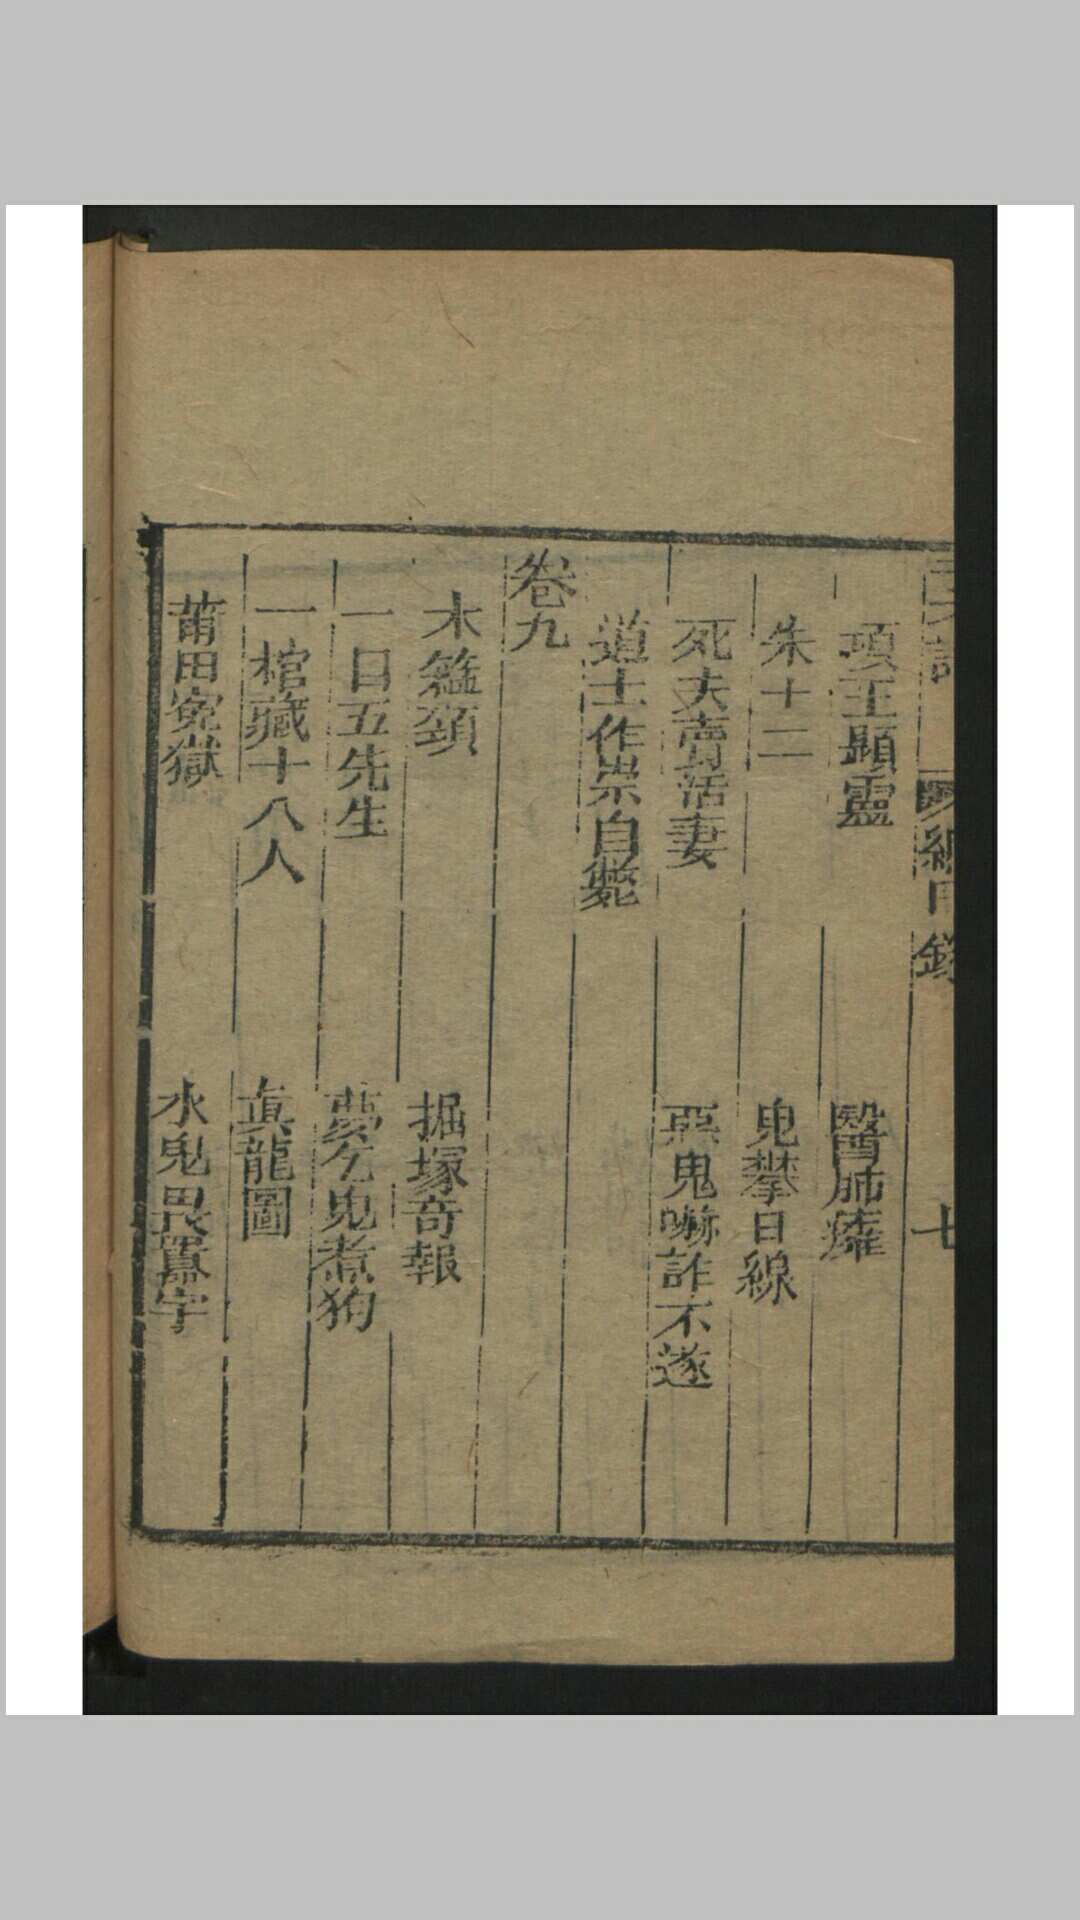 項王顯靈　醫肺癰
朱十二　鬼攀日線
死夫賣活妻　惡鬼嚇詐不遂
道士作祟自斃
卷九
木箍頸　掘塚奇報
一日五先生　夢乞兒煮狗
一棺藏十八人　眞龍圖
莆田冤獄　水鬼畏囂字